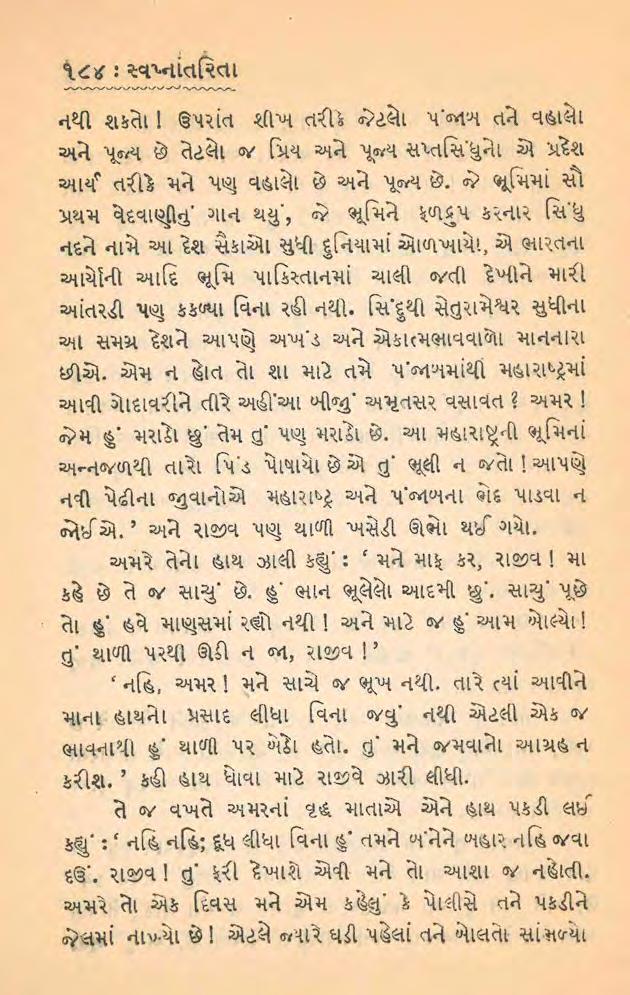 ૧૮૪ : સ્વપ્નાંતરિતા
નથી શકતો! ઉપરાંત શીખ તરીકે જેટલો પંજાબ તને વહાલો
અને પૂજ્ય છે તેટલો જ પ્રિય અને પૂજ્ય સપ્તસિંધુનો એ પ્રદેશ
આર્ય તરીકે મને પણ વહાલો છે અને પૂજ્ય છે. જે ભૂમિમાં સૌ
પ્રથમ વેદવાણીનું ગાન થયું, જે ભૂમિને ફળદ્રુપ કરનાર સિંધુ
નદને નામે આ દેશ સૈકાઓ સુધી દુનિયામાં ઓળખાયો, એ ભારતના
આર્યોની આદિ ભૂમિ પાકિસ્તાનમાં ચાલી જતી દેખીને મારી
આંતરડી પણ કકળ્યા વિના રહી નથી. સિંદુથી સેતુરામેશ્વર સુધીના
આ સમગ્ર દેશને આપણે અખંડ અને એકાત્મભાવવાળો માનનારા
છીએ. એમ ન હોત તો શા માટે તમે પંજાબમાંથી મહારાષ્ટ્રમાં
આવી ગોદાવરીને તીરે અહીંઆ બીજું અમૃતસર વસાવત? અમર!
જેમ હું મરાઠો છું તેમ તું પણ મરાઠો છે. આ મહારાષ્ટ્રની ભૂમિનાં
અન્નજળથી તારો પિંડ પોષાયો છે એ તું ભૂલી ન જતો! આપણે
નવી પેઢીના જુવાનોએ મહારાષ્ટ્ર અને પંજાબના ભેદ પાડવા ન
જોઈએ.’ અને રાજીવ પણ થાળી ખસેડી ઊભો થઈ ગયો.
અમરે તેનો હાથ ઝાલી કહ્યું : ‘ મને માફ કર, રાજીવ! મા
કહે છે તે જ સાચું છે. હું ભાન ભૂલેલો આદમી છું. સાચું પૂછે
તો હું હવે માણસમાં રહ્યો નથી! અને માટે જ હું આમ બોલ્યો!
તું થાળી પરથી ઊઠી ન જા, રાજીવ!’
‘નહિ, અમર! મને સાચે જ ભૂખ નથી. તારે ત્યાં આવીને
માના હાથનો પ્રસાદ લીધા વિના જવું નથી એટલી એક જ
ભાવનાથી હું થાળી પર બેઠો હતો. તું મને જમવાનો આગ્રહ ન
કરીશ.’ કહી હાથ ધોવા માટે રાજીવે ઝારી લીધી.
તે જ વખતે અમરનાં વૃદ્ધ માતાએ એને હાથ પકડી લઈ
કહ્યું : ‘ નહિ નહિ; દૂધ લીધા વિના હું તમને બંનેને બહાર નહિ જવા
દઉં. રાજીવ! તું ફરી દેખાશે એવી મને તો આશા જ નહોતી.
અમરે તો એક દિવસ મને એમ કહેલું કે પોલીસે તને પકડીને
જેલમાં નાખ્યો છે! એટલે જ્યારે ઘડી પહેલાં તને બોલતો સાંભળ્યો